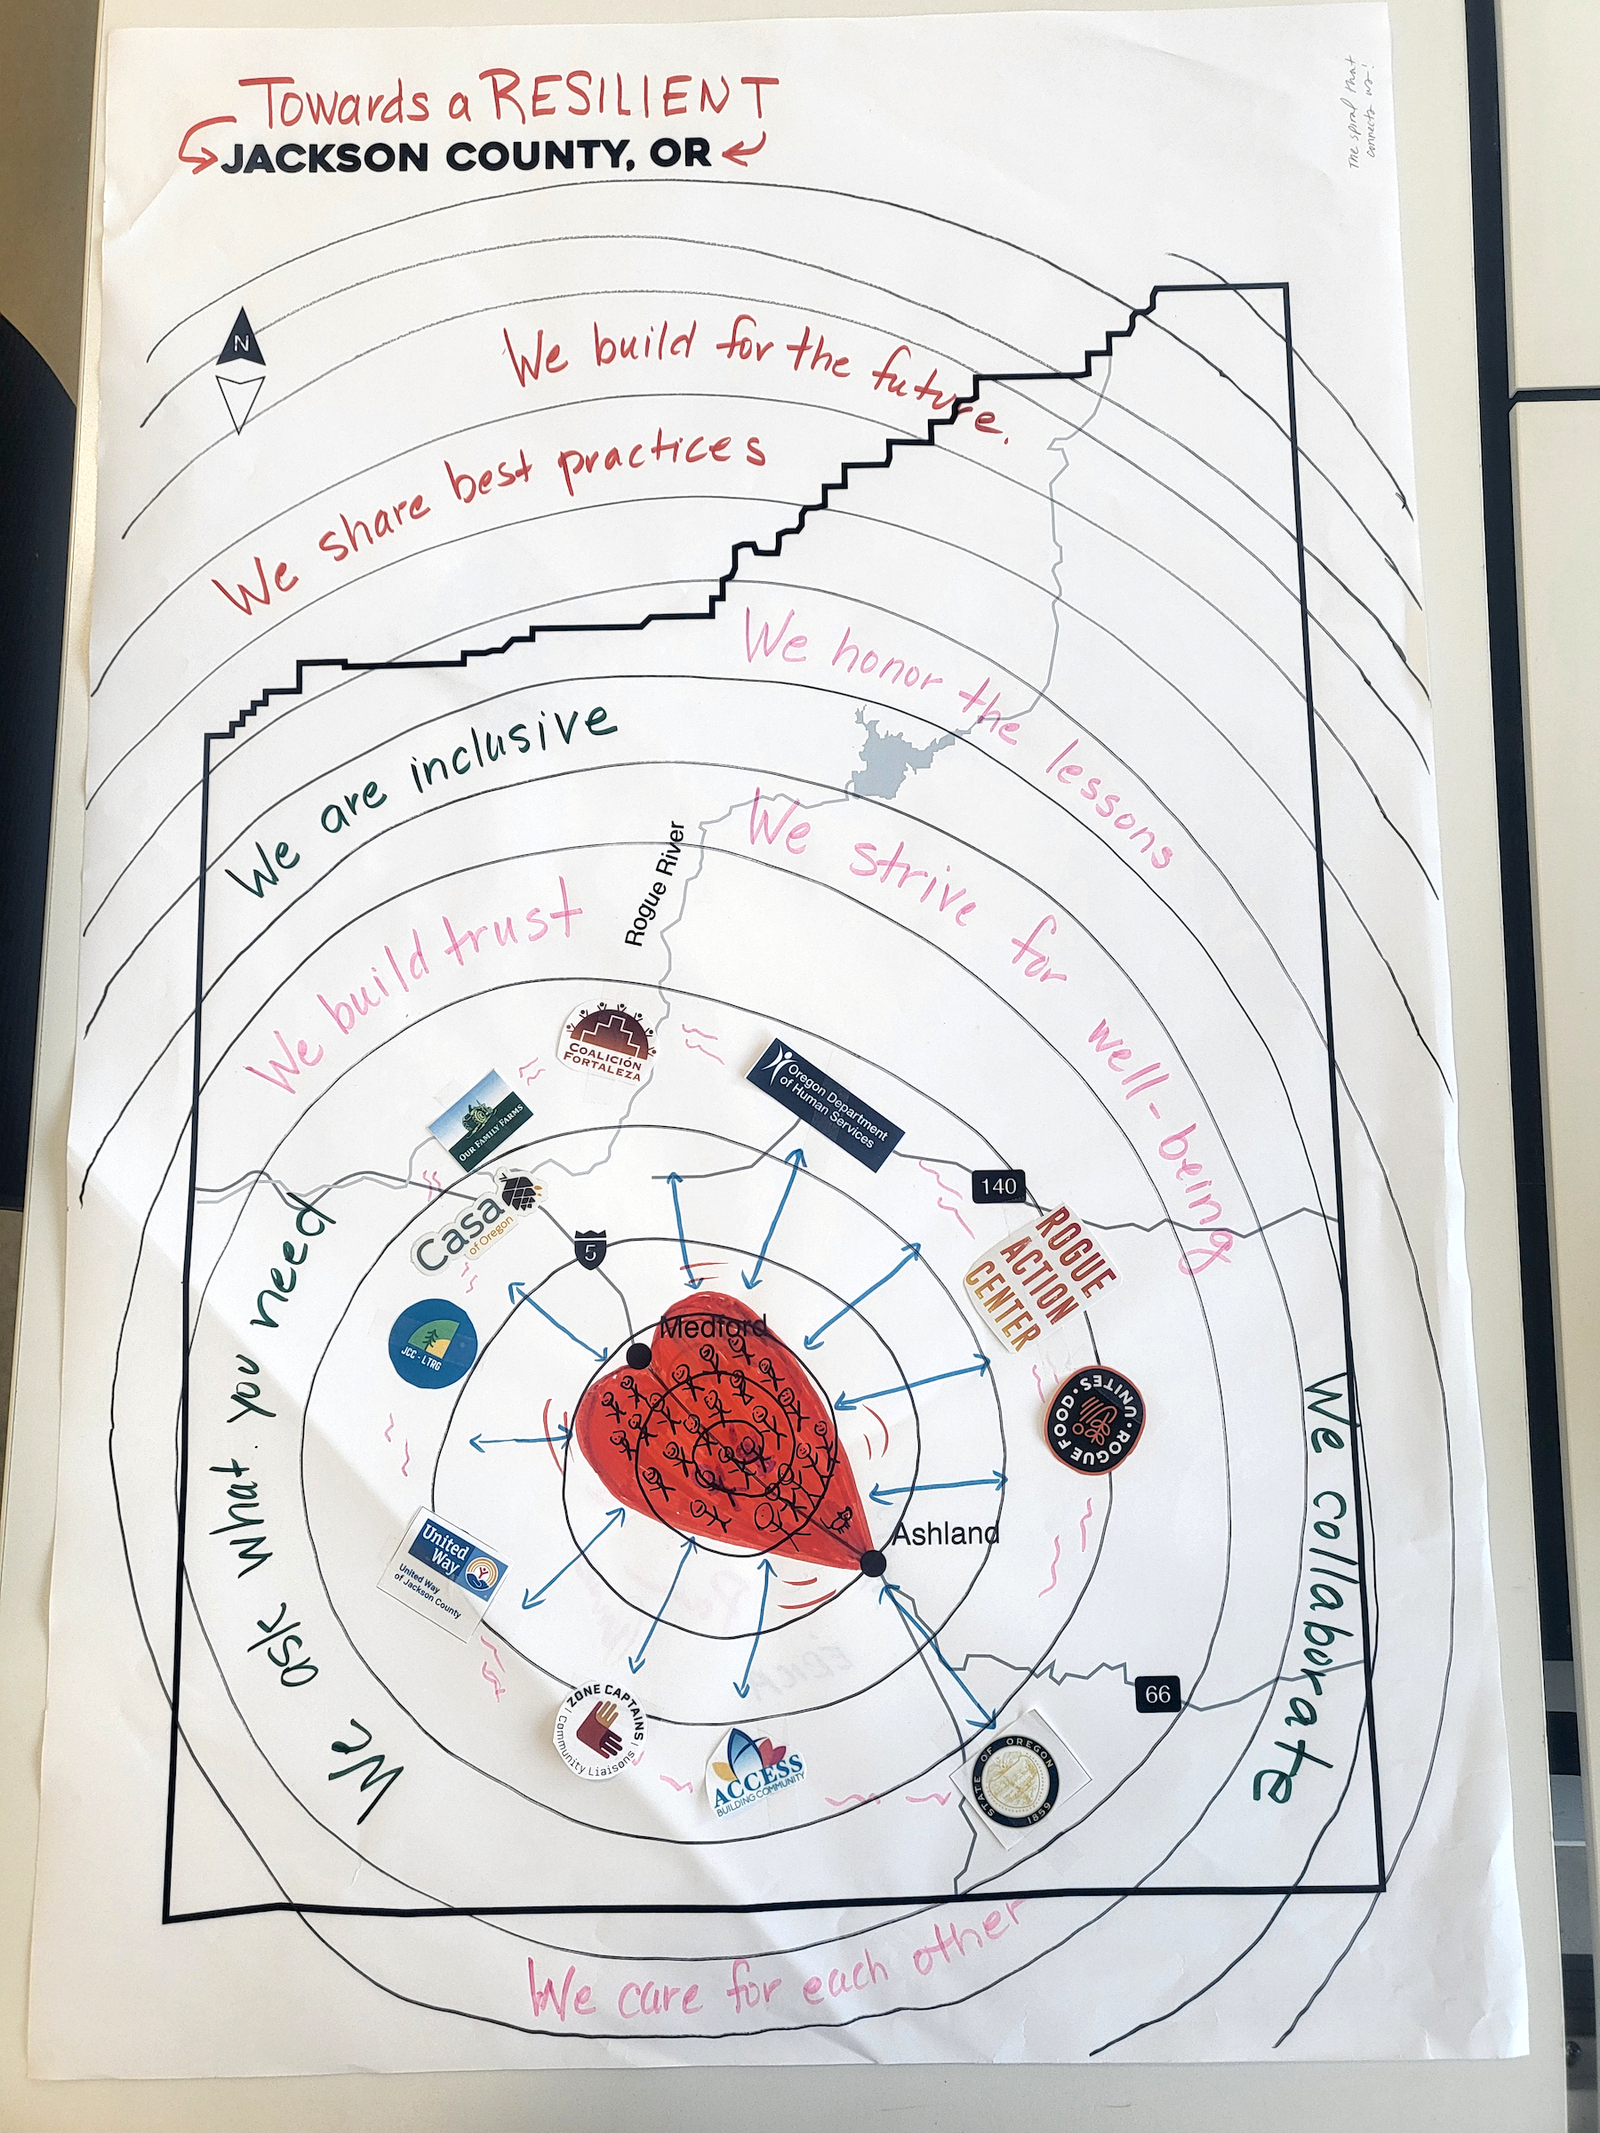 Towards a RESILIENT
JACKSON COUNTY, OR
The spiral that
connects us!
N
We build for the future.
We share best practices
We honor the lessons
We are inclusive
We strive for well-being
Rogue River
We build trust
COALICIÓN
FORTALEZA
Oregon Department
of Human Services
OUR FAMILY FARMS
Casa
of Oregon
140
5
ROGUE
ACTION
CENTER
JCC - LTRG
Medford
ROGUE FOOD UNITES
We ask what you need
We collaborate
United
Way
United Way
of Jackson County
Ashland
66
ZONE CAPTAINS
Community Liaisons
ACCESS
BUILDING COMMUNITY
STATE OF OREGON
1859
We care for each other